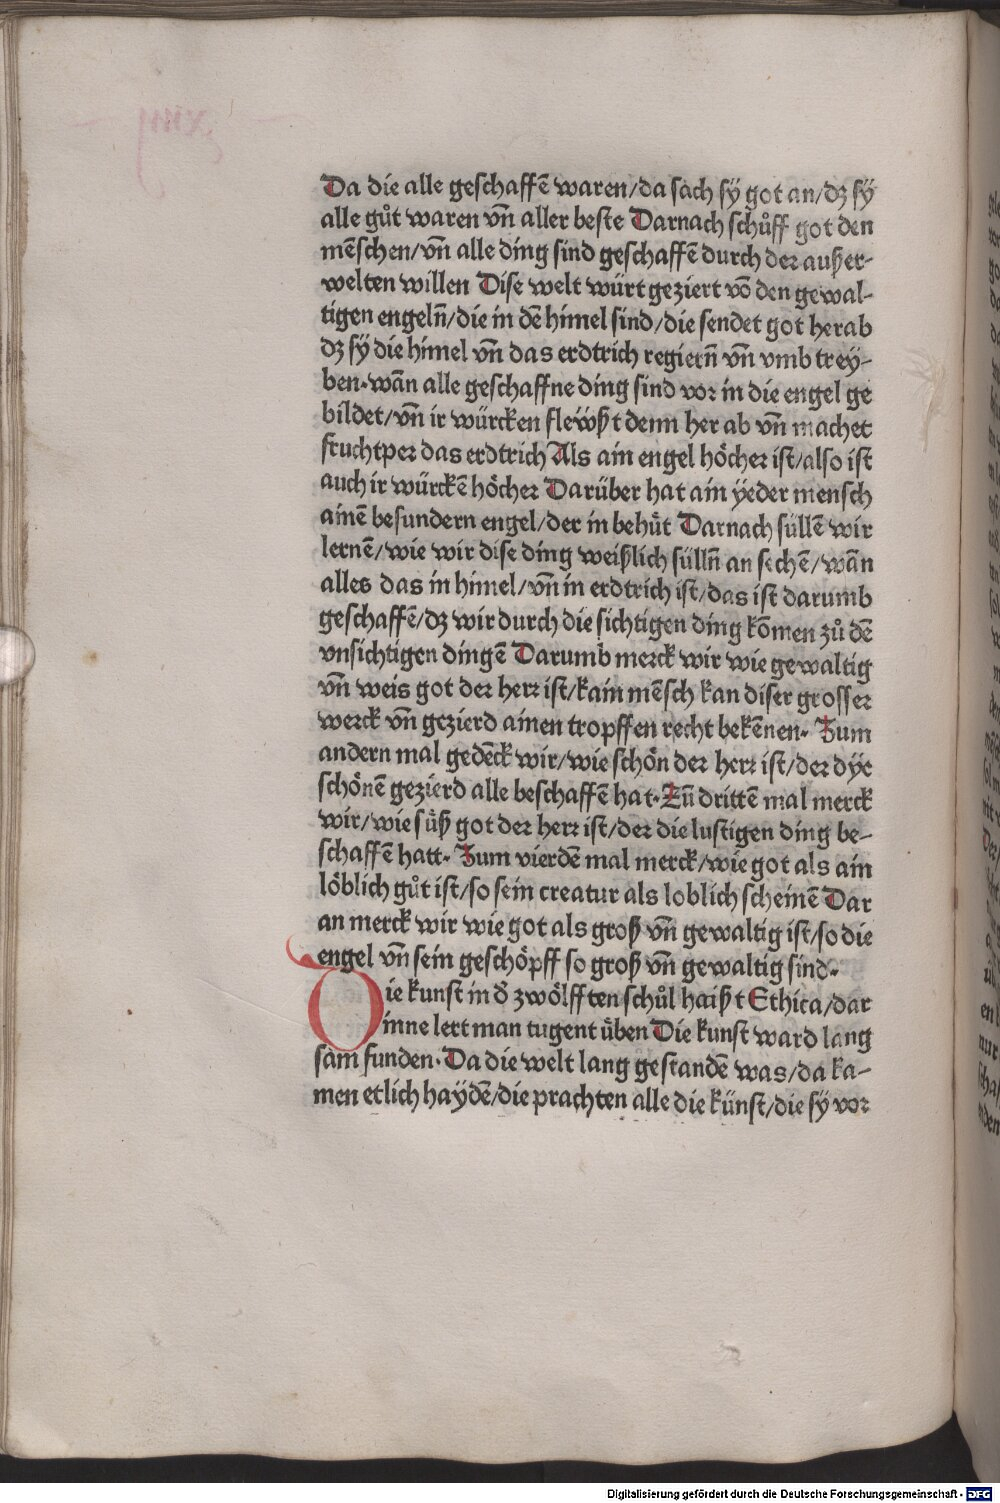 Da die alle geschaffē waren/da sach sÿ got an/dʒ sÿ
alle gůt waren vn̄ aller beste Darnach schůff got den
mēschen/vn̄ alle ding sind geschaffē durch der außer-
welten willen Dise welt würt geziert vō den gewal-
tigen engeln̄/die in dē himel sind/die sendet got herab
dʒ sÿ die himel vn̄ das erdtrich regiern̄ vn̄ vmb trey-
ben·wān alle geschaffne ding sind vor in die engel ge
bildet/vn̄ ir würcken flewßt denn her ab vn̄ machet
fruchtper das erdtrich Als ain engel höcher ist/also ist
auch ir würckē höcher Darüber hat ain ÿeder mensch
ainē besundern engel/der in behüt Darnach süllē wir
lernē/wie wir dise ding weißlich sülln̄ an sechē/wān
alles das in himel/vn̄ in erdtrich ist/das ist darumb
geschaffē/dʒ wir durch die sichtigen ding kōmen zů dē
vnsichtigen dingē Darumb merck wir wie gewaltig
vn̄ weis got der herr ist/kain mēsch kan diser grosser
werck vn̄ gezierd ainen tropffen recht bekēnen· Zum
andern mal gedēck wir/wie schön der herr ist/der dÿe
schönē gezierd alle beschaffē hat·Zū drittē mal merck
wir/wie süß got der herr ist/der die lustigen ding be-
schaffē hatt· Zum vierdē mal merck/wie got als ain
löblich gůt ist/so sein creatur als loblich scheinē Dar
an merck wir wie got als groß vn̄ gewaltig ist/so die
engel vn̄ sein geschöpff so groß vn̄ gewaltig sind·
Die kunst in d̄ zwölfften schůl haißt Ethica/dar
inne lert man tugent üben Die kunst ward lang
sam funden· Da die welt lang gestandē was/da ka-
men etlich haÿdē/die prachten alle die künst/die sÿ vor
Digitalisierung gefördert durch die Deutsche Forschungsgemeinschaft - DFG